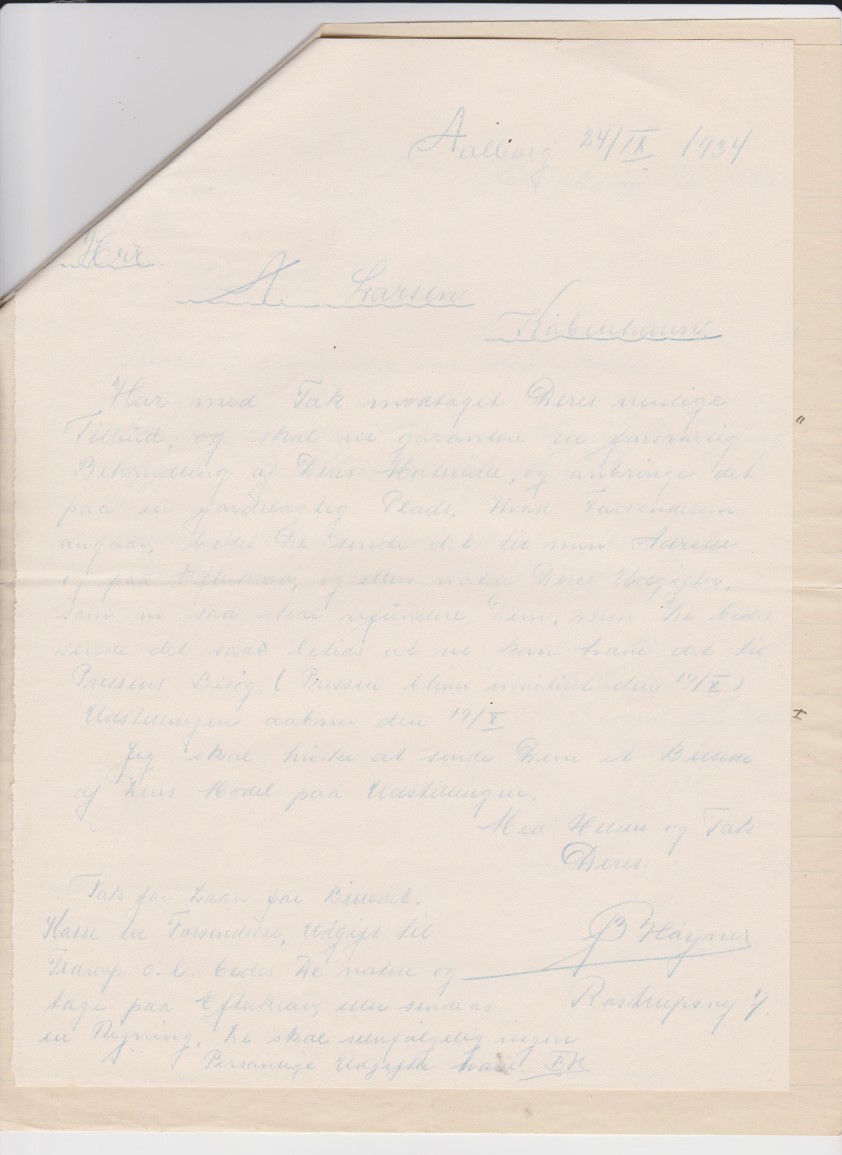 Aalborg 24/IX 1934
Herr
A. Larsen
København.
Har med Tak modtaget Deres venlige
Tilbud, og skal vi garantere en forsvarlig
Behandling af Deres Materiale, og anbringe det
paa en fordelagtig Plads. Hvad Forsendelsen
angaar, bedes De sende det til min Adresse
og paa Efterkrav, og ellers notere Deres Udgifter,
som vi saa skal refundere Dem, men De bedes
sende det saa betids at vi kan have det til
Pressens Besøg (Pressen bliver inviteret den /X)
Udstillingen aabner den 19/X
Jeg skal huske at sende Dem et Billede
af Deres Model paa Udstillingen.
Med Hilsen og Tak
Deres
Tak for Laan for Billedet.
Kasse til Forsendelse, Udgift til
o.l. bedes De notere og
tage paa Efterkrav eller sende os
en Regning. De skal selvfølgelig ingen
Personlige Udgifter have.
B
Rostrupsvej